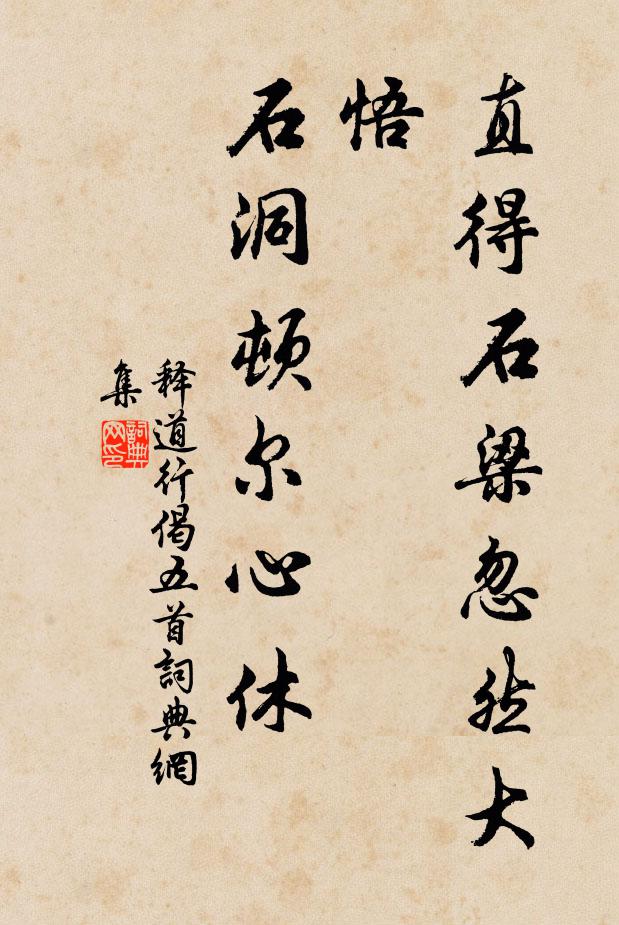 直得石梁忽然大
悟
石洞顿尔心休
释道行偈五首詞典網
集
詞典
网印